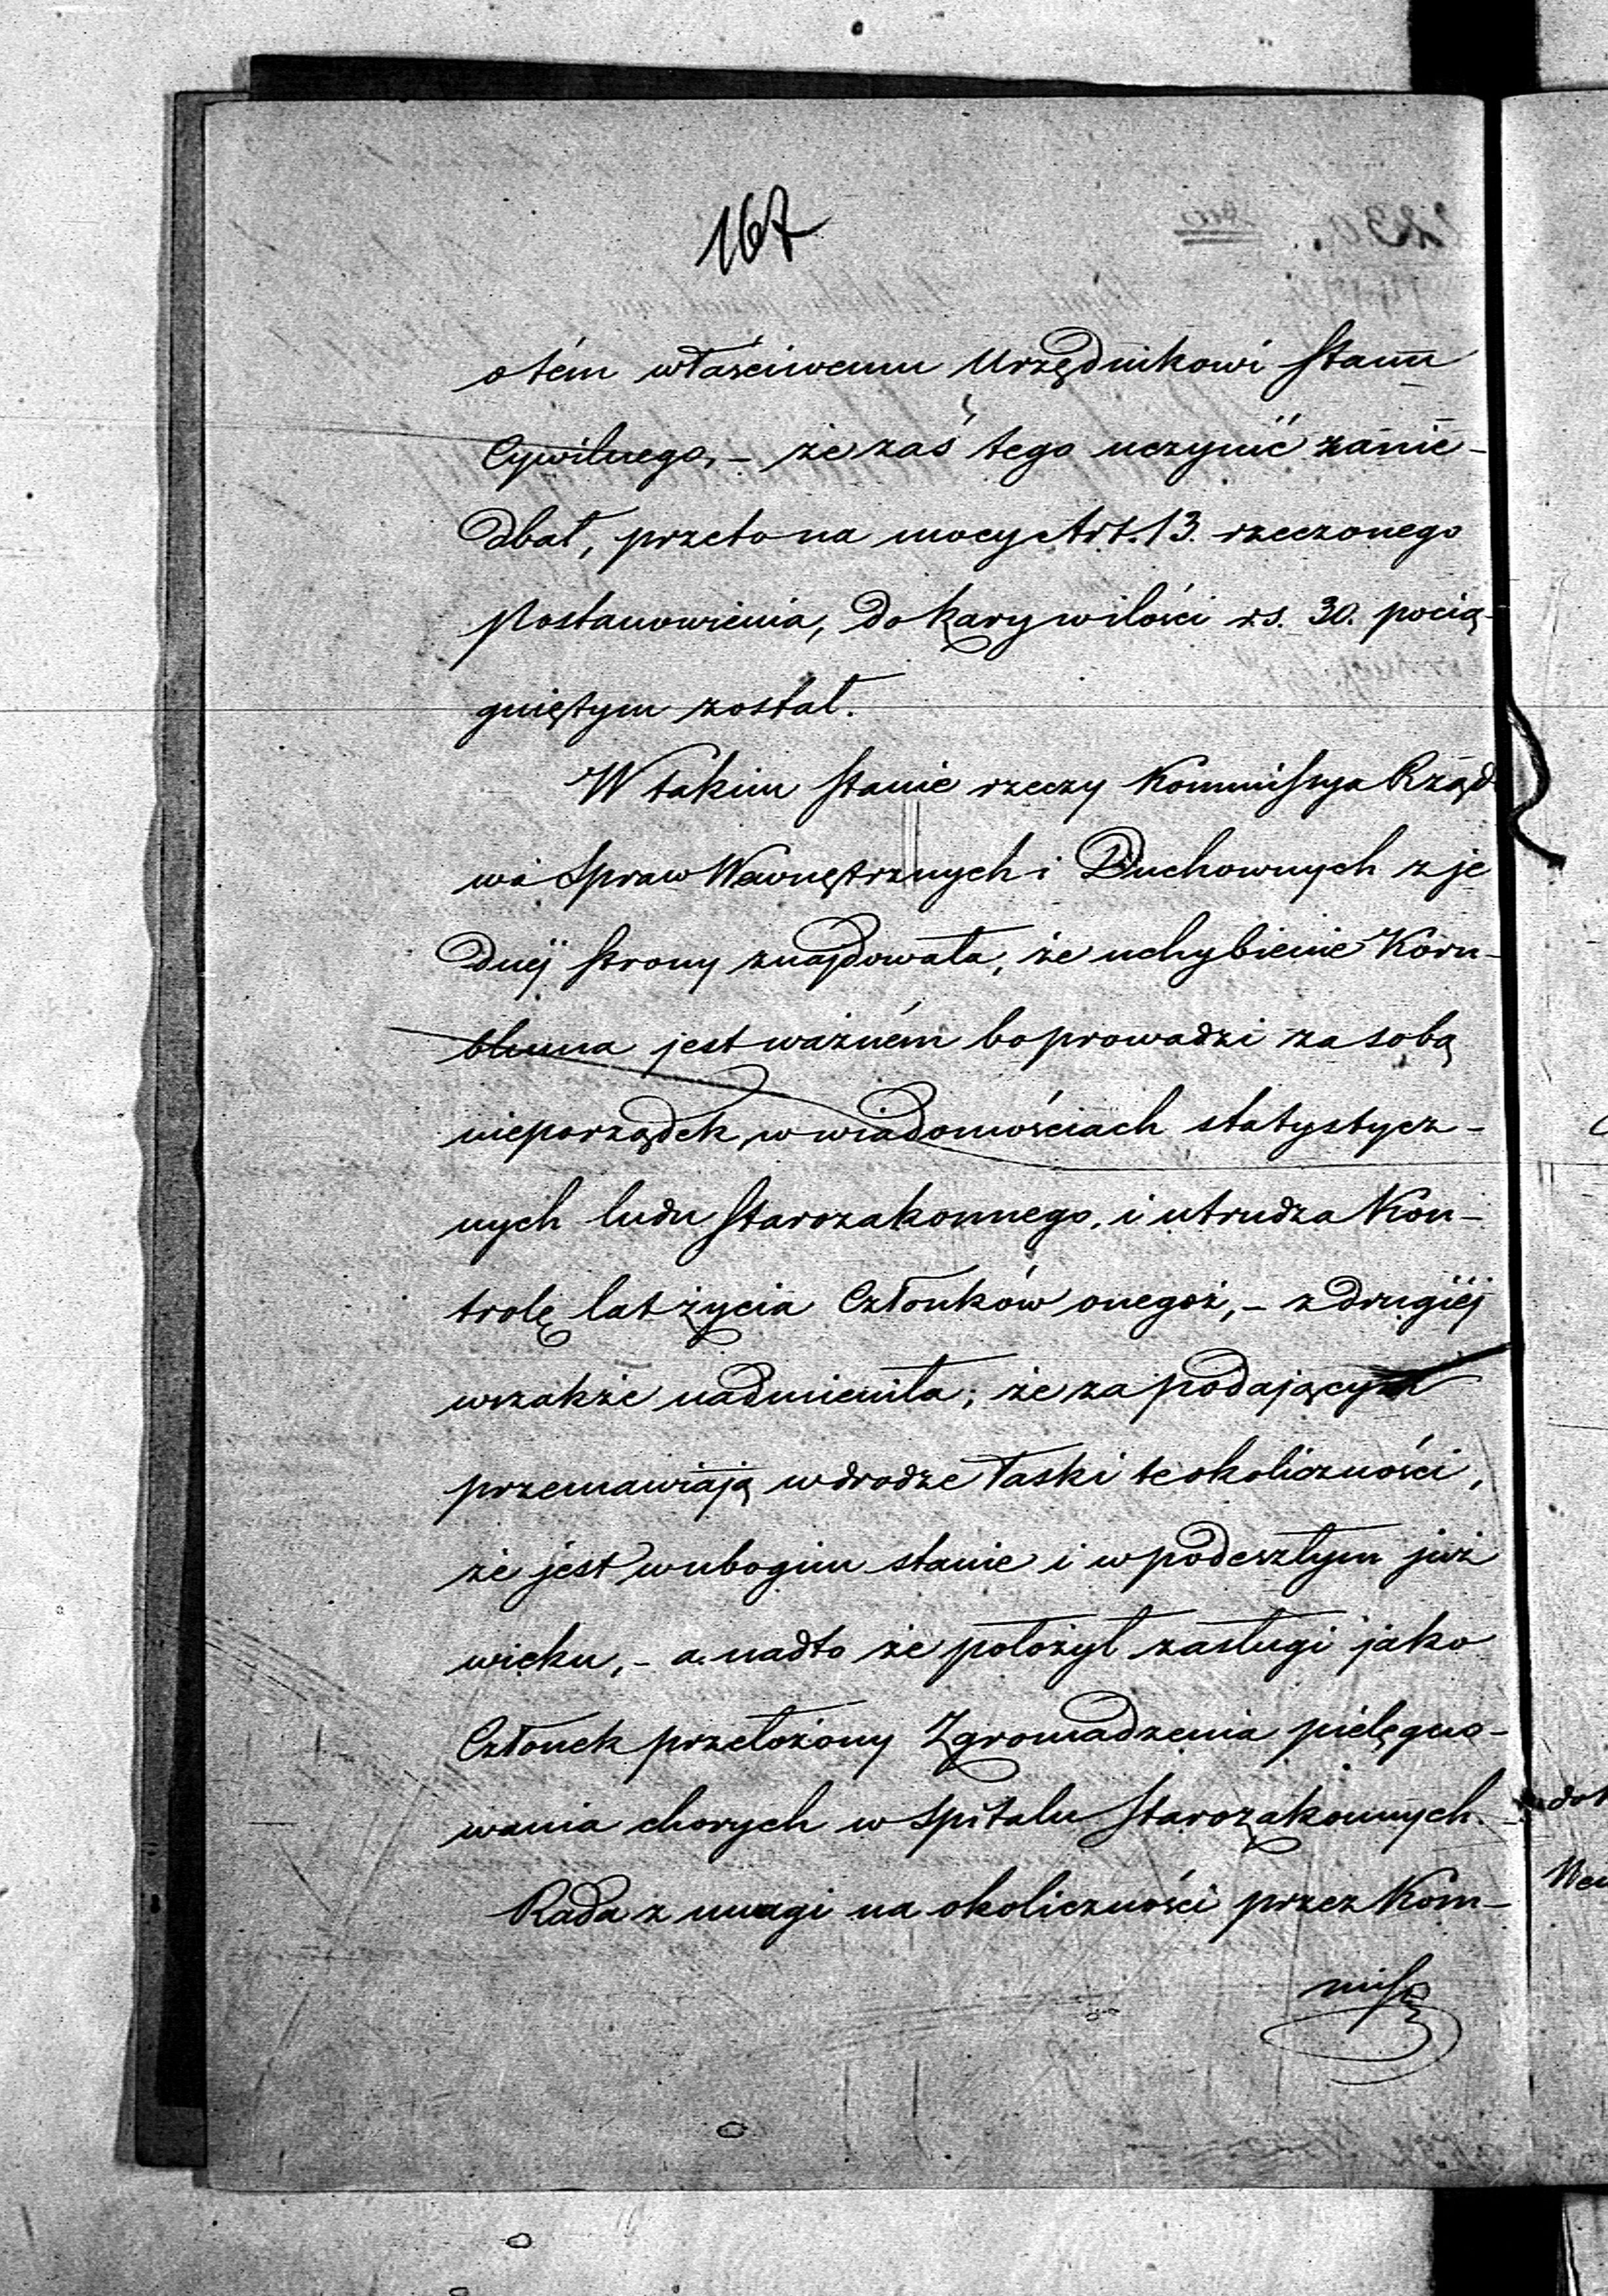 167
o tém właściwemu Urzędnikowi Stanu
Cywilnego, – że zaś tego uczynić zanie-
dbał, przeto na mocy Art. 13. rzeczonego
Postanowienia, do kary w ilości rs. 30. pocią-
gniętym został.
W takim stanie rzeczy Kommissya Rządo
wa Spraw Wewnętrznych i Duchownych z je
dnéj strony znajdowała, że uchybienie Korn-
bluma jest ważném bo prowadzi za sobą
nieporządek w wiadomościach statystycz-
nych ludu starozakonnego, i utrudza Kon-
trolę lat życia Członków onegoż, – z drugiéj
wszakże nadmieniła; że za podającym
przemawiają w drodze łaski te okoliczności,
że jest w ubogim stanie i w podeszłym już
wieku, – a nadto że położył zasługi jako
Członek przełożony Zgromadzenia pielęgno-
wania chorych w Spitalu Starozakonnych. –
Rada z uwagi na okoliczności przez Kom-
miss